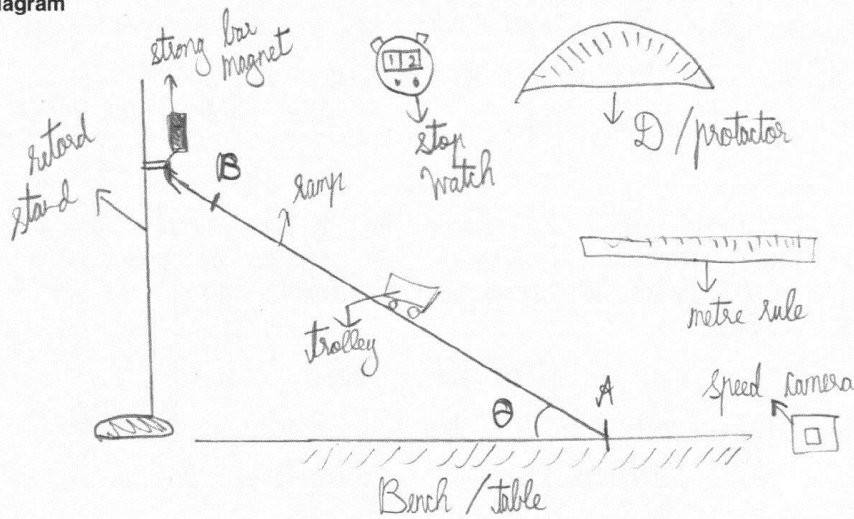 diagram
strong bar
magnet
1 2
stop
watch
D / protactor
retord
stand
B
ramp
metre rule
trolley
speed camera
θ
A
Bench / table